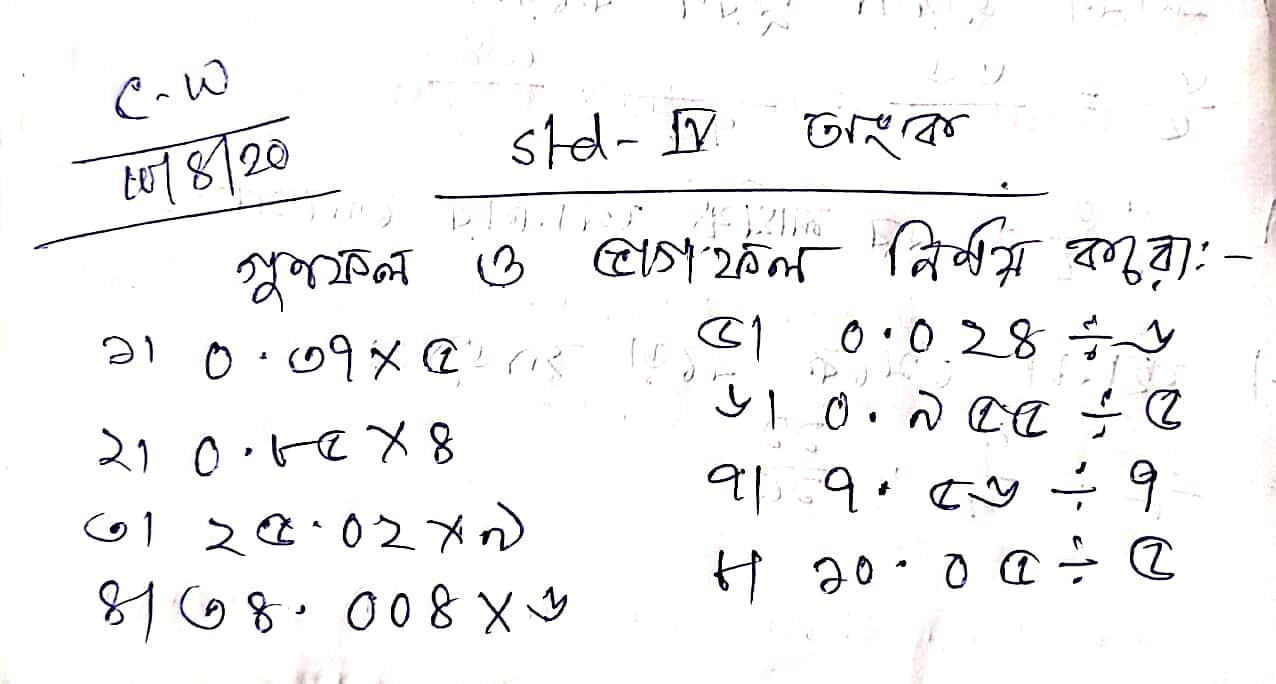 C-W
10/8/20
std-IV অংক
গুণফল ও ভাগফল নির্ণয় করো:-
১। ০.৩৭×৫
২। ০.৮৫×৪
৩। ২৫.০২×৯
৪। ৩৪.০০৪×৬
৫। ০.০২৪÷৬
৬। ০.৯৫৫÷৫
৭। ৭.৫৬÷৭
৮। ১০.০৫÷৫